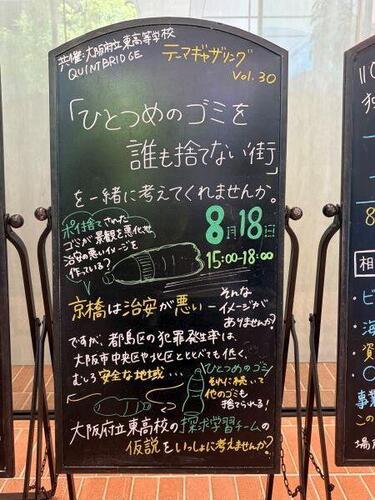 共催:大阪府立東高等学校
QUINTBRIDGE
テーマギャザリング
Vol.30
「ひとつめのゴミを
誰も捨てない街」
を一緒に考えてくれませんか。
8月18日
15:00-18:00
ポイ捨てされた
ゴミが景観を悪化せ
治安の悪いイメージを
作っている?
京橋は治安が悪い
そんな
イメージが
ありませんか?
ですが、都島区の犯罪発生率は、
大阪市中央区や北区とくらべても低く、
むしろ安全な地域…
ひとつめのゴミ
それに続いて
他のゴミも
捨てられる!
大阪府立東高校の探求学習チームの
仮説をいっしょに考えませんか?
相
ビ
海
資
事業
この
場